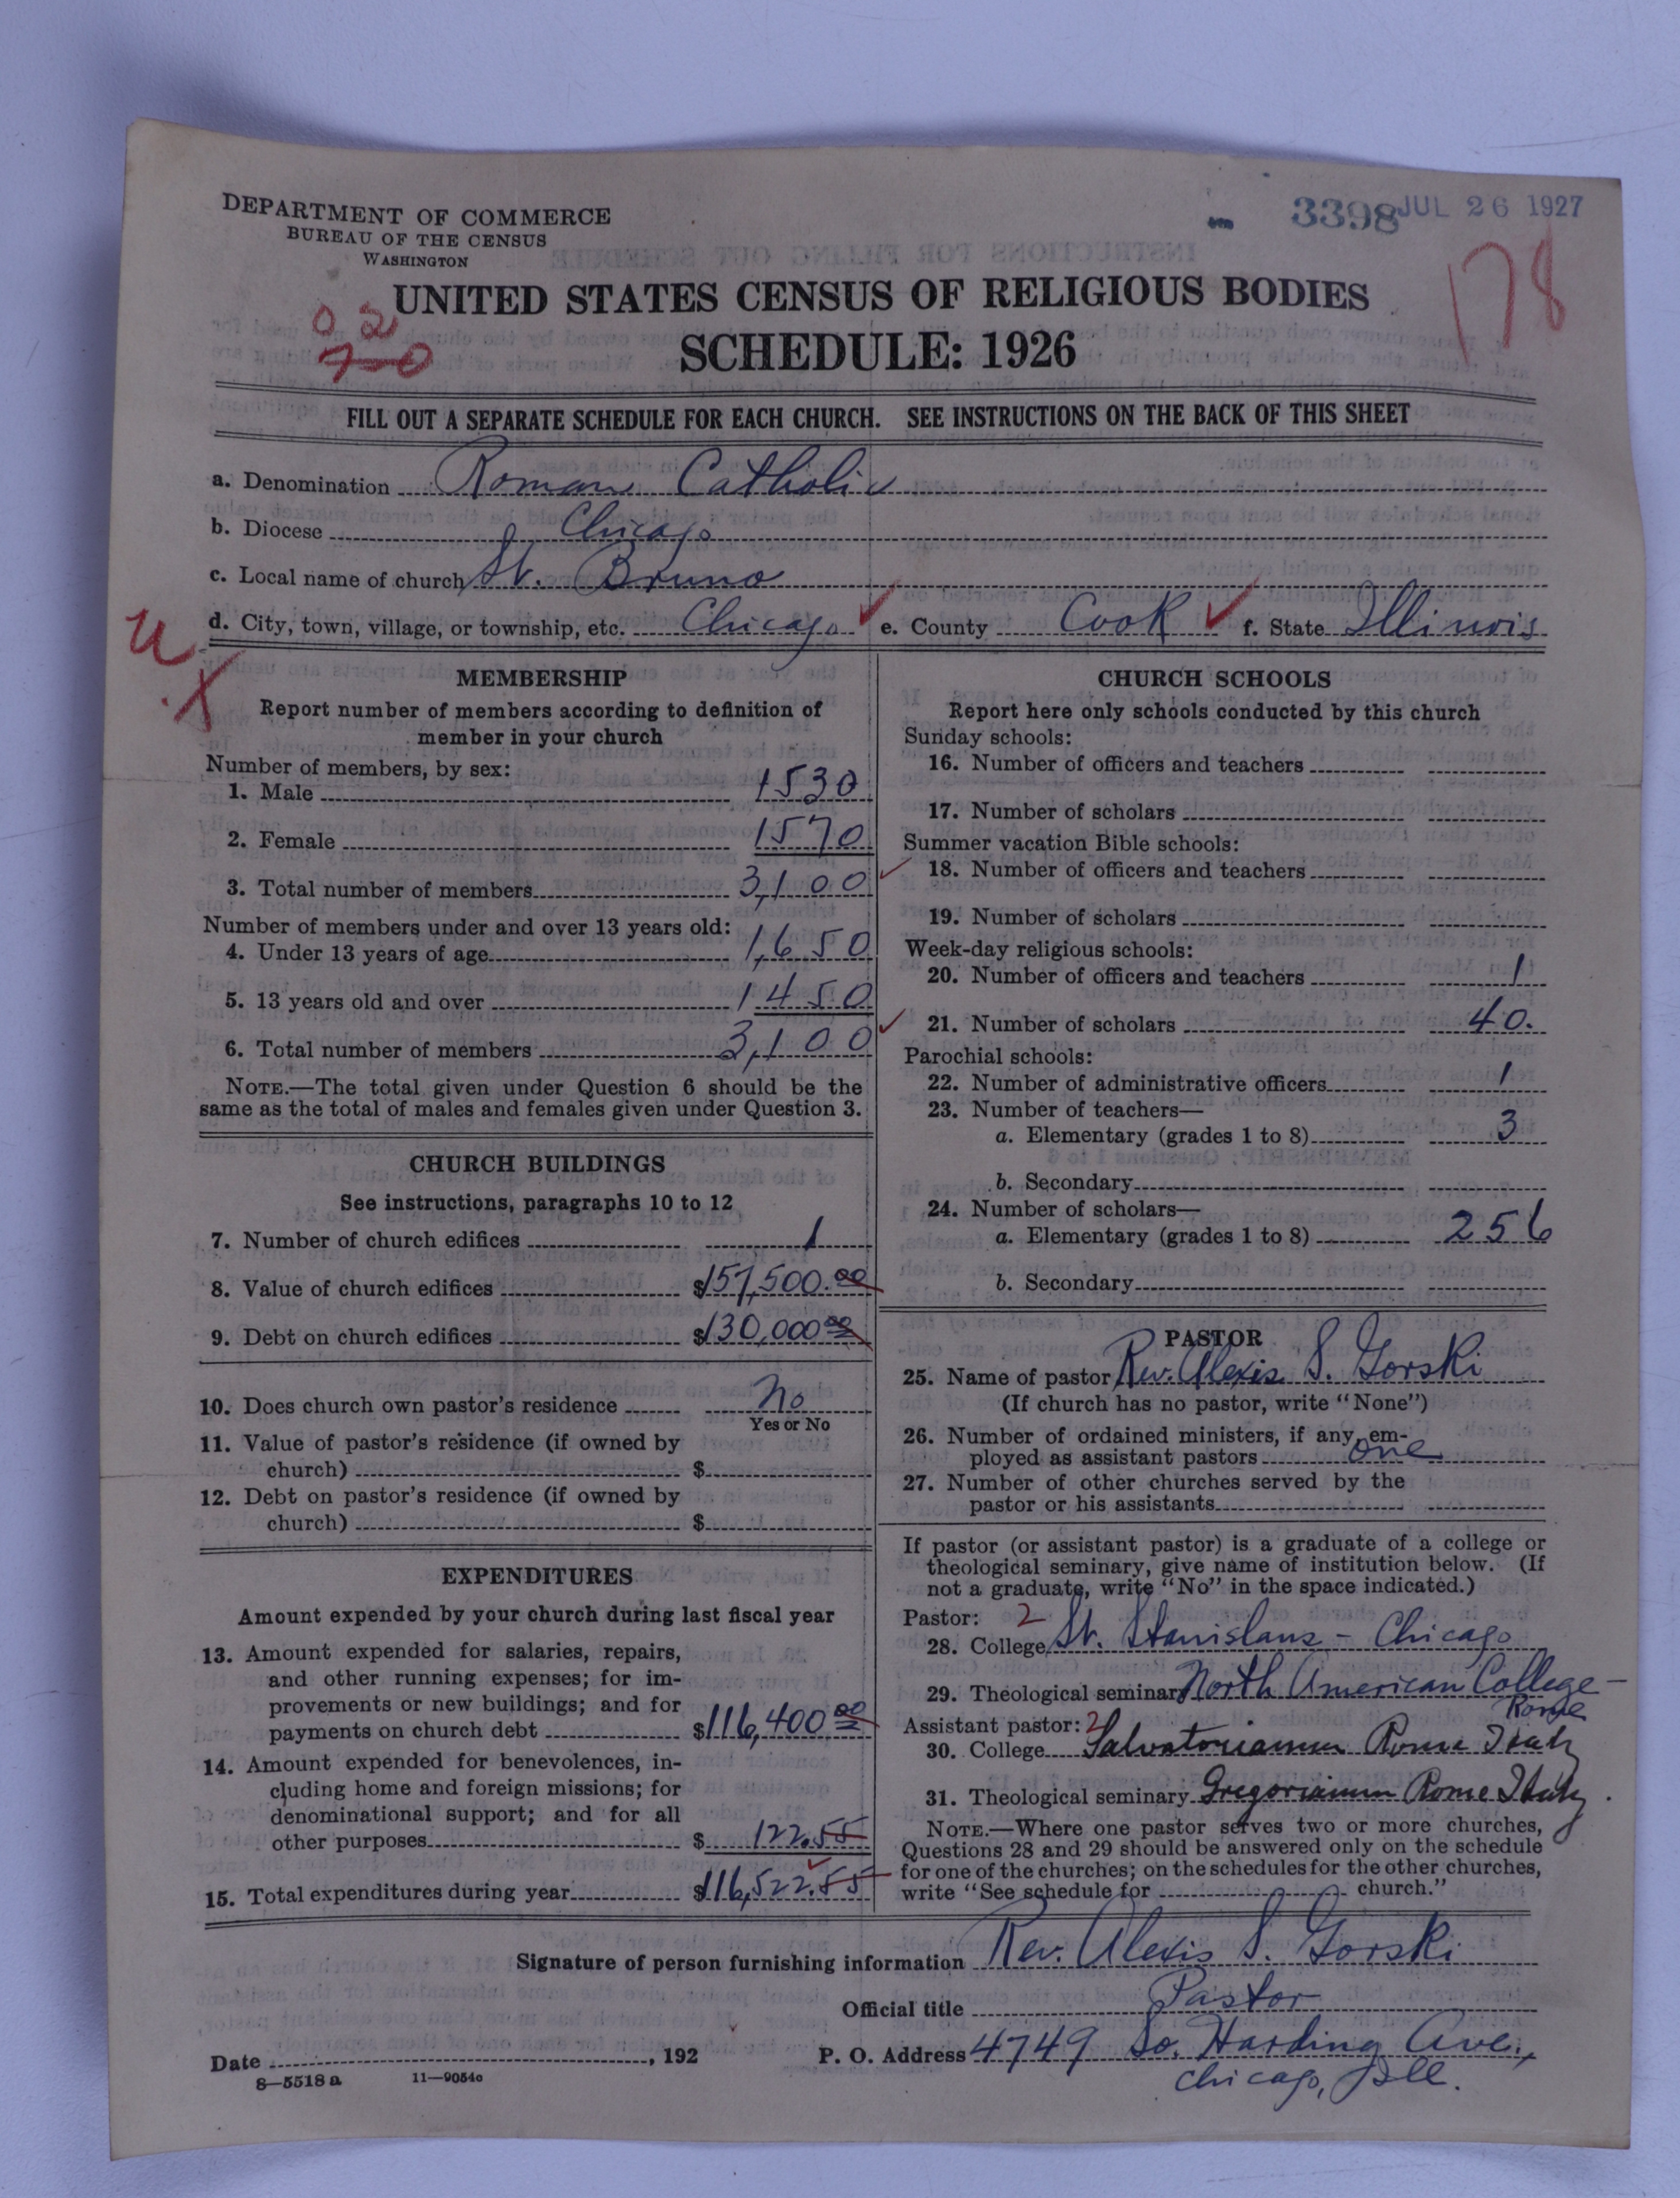 DEPARTMENT OF COMMERCE
BUREAU OF THE CENSUS
WASHINGTON
3398 JUL 26 1927
178
UNITED STATES CENSUS OF RELIGIOUS BODIES
0 2
7-0
SCHEDULE: 1926
FILL OUT A SEPARATE SCHEDULE FOR EACH CHURCH. SEE INSTRUCTIONS ON THE BACK OF THIS SHEET
a. Denomination Roman Catholic
b. Diocese Chicago
c. Local name of church St. Bruno
d. City, town, village, or township, etc. Chicago e. County Cook f. State Illinois
MEMBERSHIP
Report number of members according to definition of
member in your church
Number of members, by sex:
1. Male 1530
2. Female 1570
3. Total number of members 3,100
Number of members under and over 13 years old:
4. Under 13 years of age 1,650
5. 13 years old and over 1450
6. Total number of members 3,100
NOTE.—The total given under Question 6 should be the
same as the total of males and females given under Question 3.
CHURCH BUILDINGS
See instructions, paragraphs 10 to 12
7. Number of church edifices 1
8. Value of church edifices $157,500.00
9. Debt on church edifices $130,000.00
10. Does church own pastor's residence No
Yes or No
11. Value of pastor's residence (if owned by
church) $
12. Debt on pastor's residence (if owned by
church) $
EXPENDITURES
Amount expended by your church during last fiscal year
13. Amount expended for salaries, repairs,
and other running expenses; for im-
provements or new buildings; and for
payments on church debt $116,400.00
14. Amount expended for benevolences, in-
cluding home and foreign missions; for
denominational support; and for all
other purposes $ 122.55
15. Total expenditures during year $116,522.55
CHURCH SCHOOLS
Report here only schools conducted by this church
Sunday schools:
16. Number of officers and teachers
17. Number of scholars
Summer vacation Bible schools:
18. Number of officers and teachers
19. Number of scholars
Week-day religious schools:
20. Number of officers and teachers 1
21. Number of scholars 40.
Parochial schools:
22. Number of administrative officers 1
23. Number of teachers—
a. Elementary (grades 1 to 8) 3
b. Secondary
24. Number of scholars—
a. Elementary (grades 1 to 8) 256
b. Secondary
PASTOR
25. Name of pastor Rev. Alexis S. Gorski
(If church has no pastor, write "None")
26. Number of ordained ministers, if any, em-
ployed as assistant pastors one
27. Number of other churches served by the
pastor or his assistants
If pastor (or assistant pastor) is a graduate of a college or
theological seminary, give name of institution below. (If
not a graduate, write "No" in the space indicated.)
Pastor: 2
28. College St. Stanislaus - Chicago
29. Theological seminary North American College -
Rome
Assistant pastor: 2
30. College Salvatorianum Rome Italy
31. Theological seminary Gregorianum Rome Italy.
NOTE.—Where one pastor serves two or more churches,
Questions 28 and 29 should be answered only on the schedule
for one of the churches; on the schedules for the other churches,
write "See schedule for church."
Signature of person furnishing information Rev. Alexis S. Gorski
Official title Pastor
Date , 192 P. O. Address 4749 So. Harding Ave.,
Chicago, Ill.
8—5518a 11—9054c